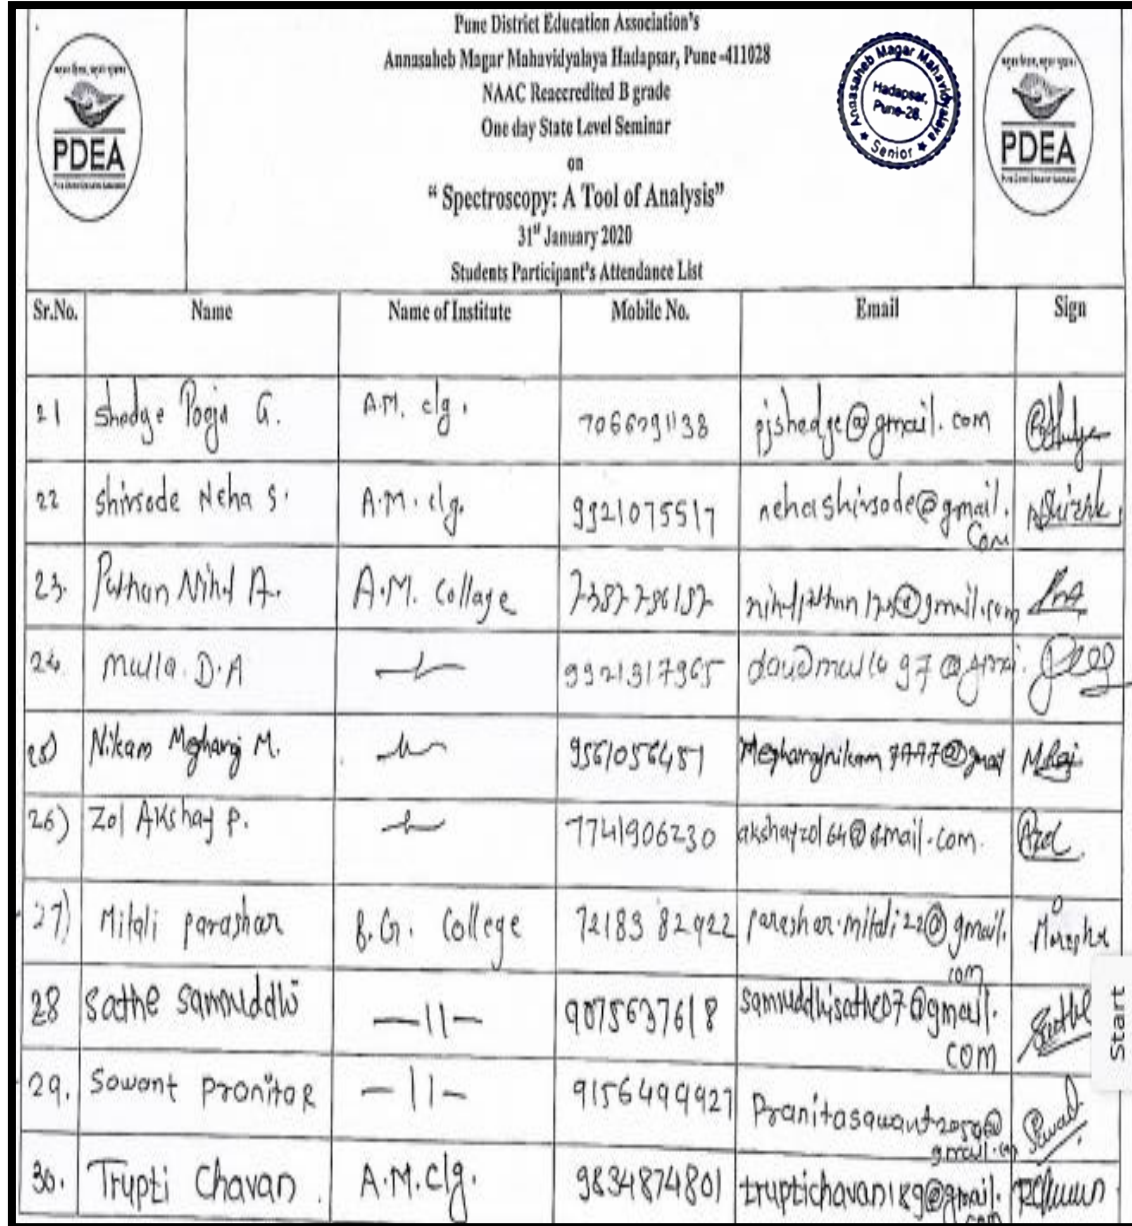 Pune District Education Association's
Annasaheb Magar Mahavidyalaya Hadapsar, Pune-411028
NAAC Reaccredited B grade
One day State Level Seminar
on
“ Spectroscopy: A Tool of Analysis”
31st January 2020
Students Participant's Attendance List
PDEA
Annasaheb Magar Mahavidyalaya
Hadapsar,
Pune-28.
★ Senior ★
PDEA
Sr.No. Name Name of Institute Mobile No. Email Sign
21 Shedge Pooja G. A.M. clg. 7066091138 pjshedge@gmail.com
22 Shivsode Neha S. A.M. clg. 9921075517 nehashivsode@gmail.
com
23. Pathan Nihal A. A.M. Collage 7387796157
24. Mulla. D.A 9921317965
25) Nikam Megharaj M. 9561056451
26) Zol Akshay P. 7741906230 akshayzol64@gmail.com.
27) Mitali parashar B.G. College 72183 82922 parashar.mitali22@gmail.
com
28 Sathe Samruddhi —11— 9075637618 samruddhisathe07@gmail.
com
29. Sawant Pranita R —11— 9156499927 Pranitasawant2050@
gmail.com
30. Trupti Chavan. A.M.clg. 9834874801 truptichavan189@gmail.
com
Start